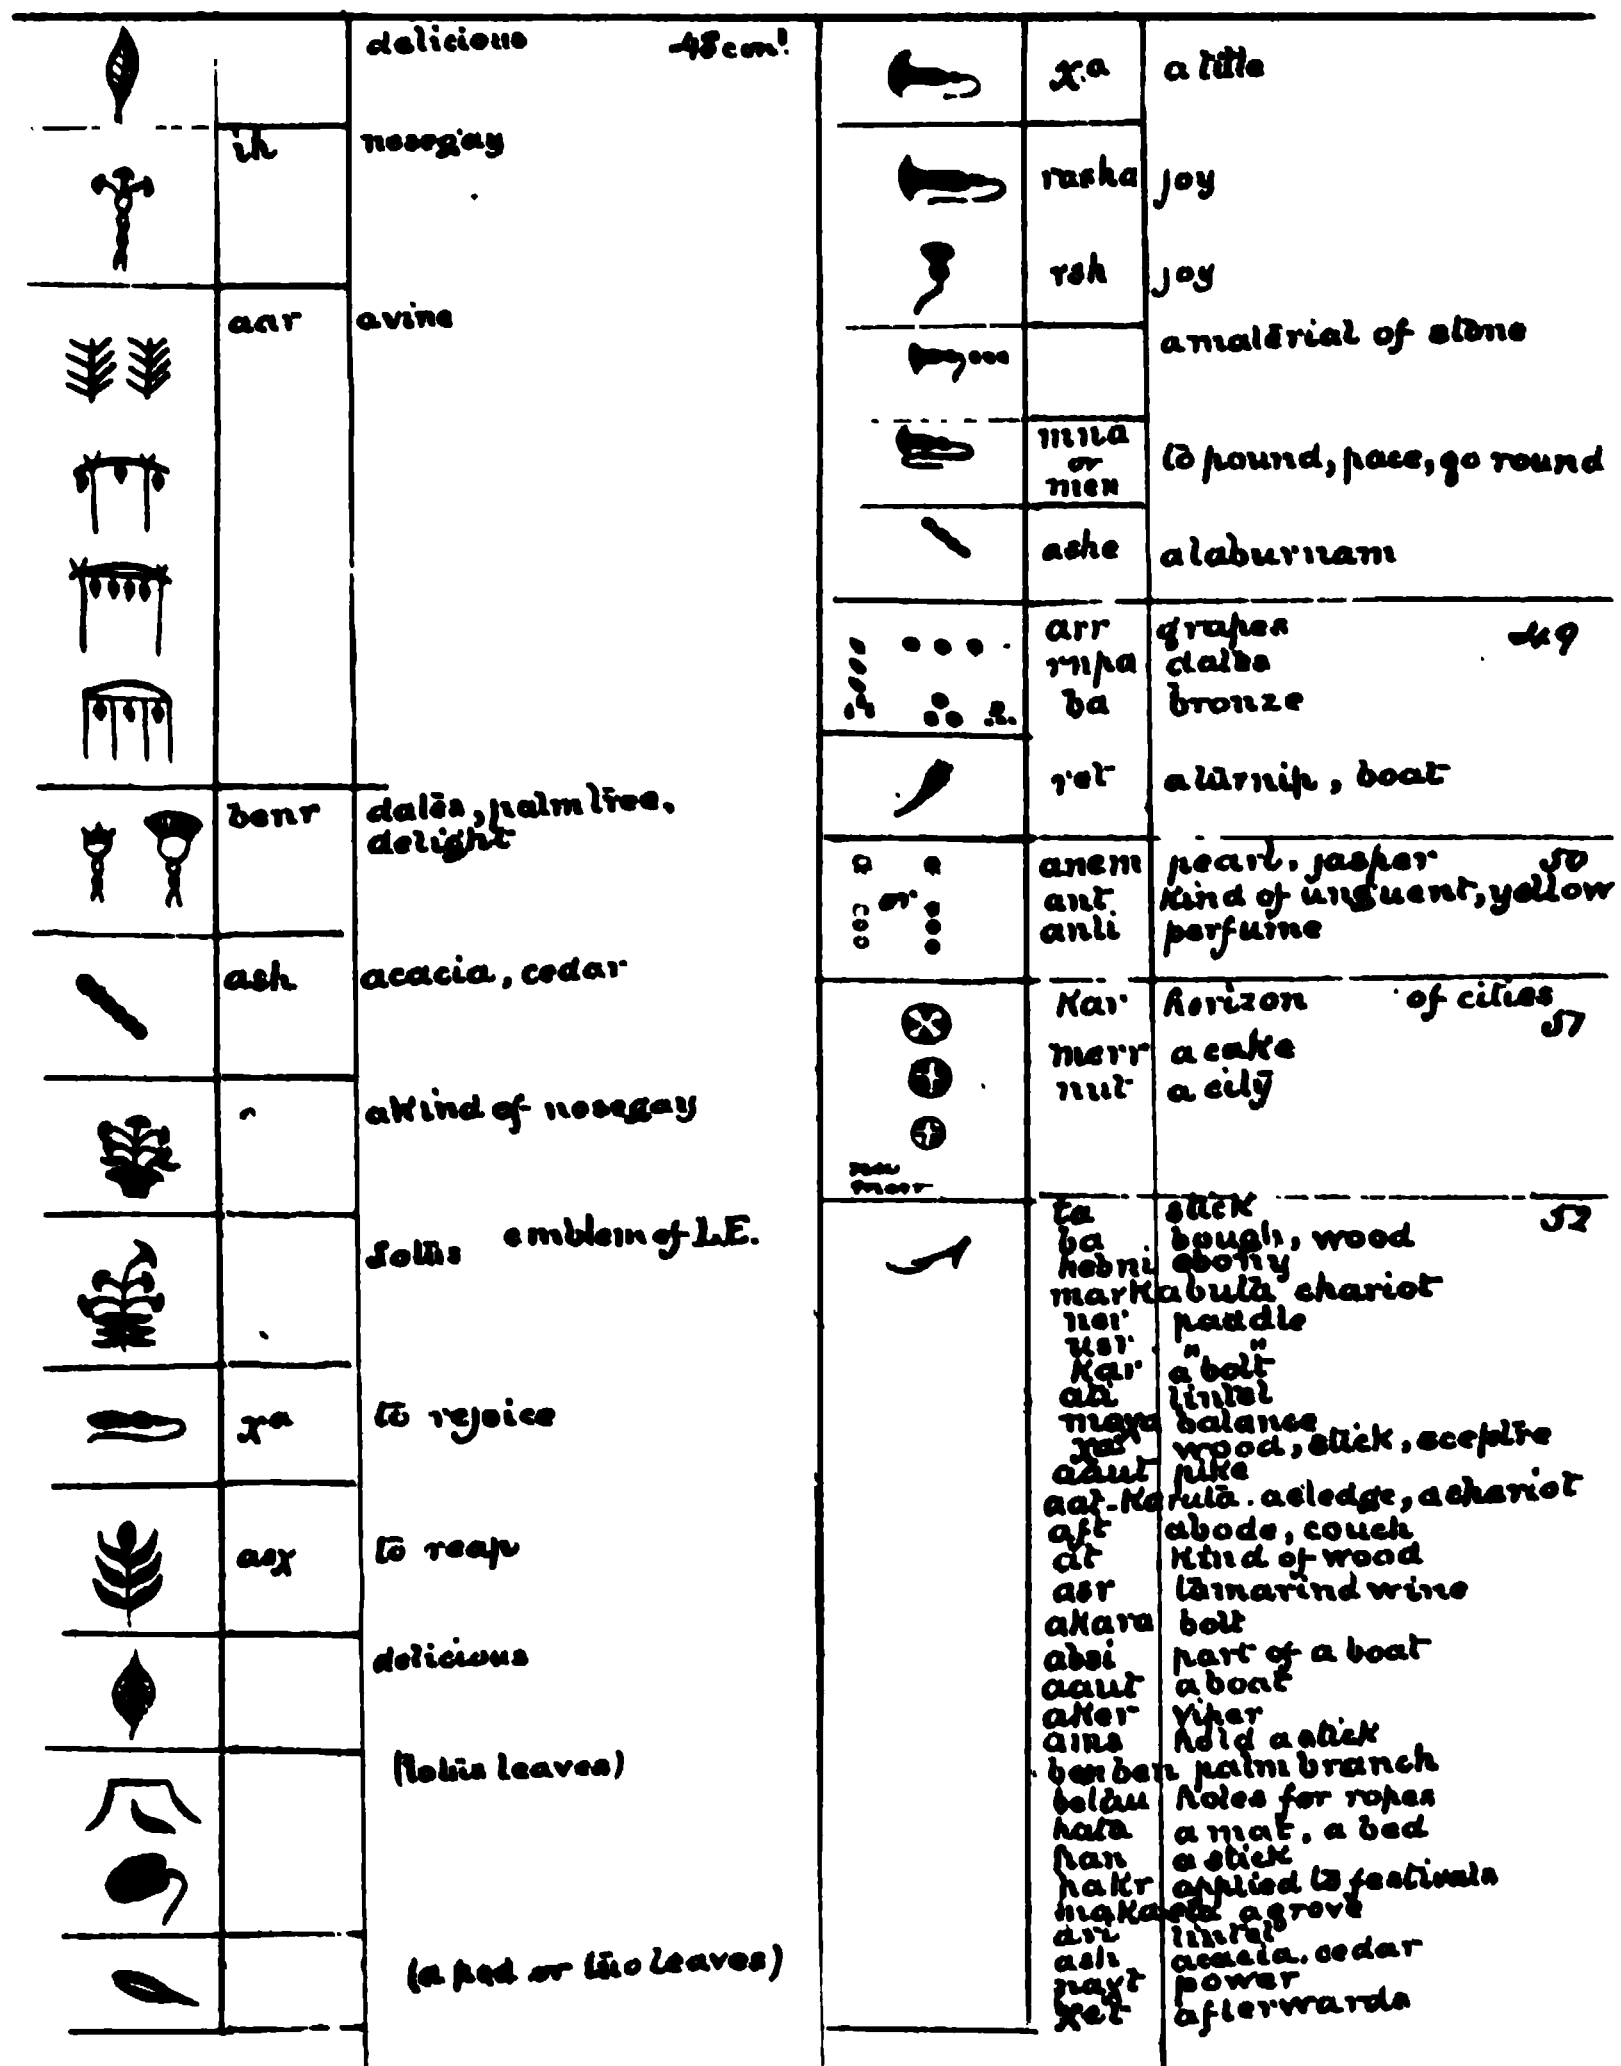 delicious 48 con!
ih nosegay
aar a vine
benr dates, palm tree,
delight
ash acacia, cedar
a kind of nosegay
lotus emblem of L.E.
χa to rejoice
asχ to reap
delicious
(lotus leaves)
(a pod or two leaves)
χa a title
rasha joy
rsh joy
a material of stone
mna
or to pound, pace, go round
men
ashe a laburnam
arr grapes 49
rnpa dates
ba bronze
ret a turnip, boat
anem pearl, jasper 50
or ant kind of unguent, yellow
anti perfume
Kar horizon of cities
51
merr a cake
nut a city
ta stick 52
ba bough, wood
hebni ebony
markabuta chariot
ner paddle
usr " "
Kar a bolt
ati lintel
maχa balance
χa wood, stick, sceptre
aaut pike
aat-Karuta. a sledge, a chariot
aft abode, couch
at kind of wood
asr tamarind wine
akara bolt
absi part of a boat
aaut a boat
aker viper
ams hold a stick
benben palm branch
betau holes for ropes
hata a mat, a bed
han a stick
hakr applied to festivals
a grove
arr lintel
ash acacia. cedar
naχt power
χet afterwards